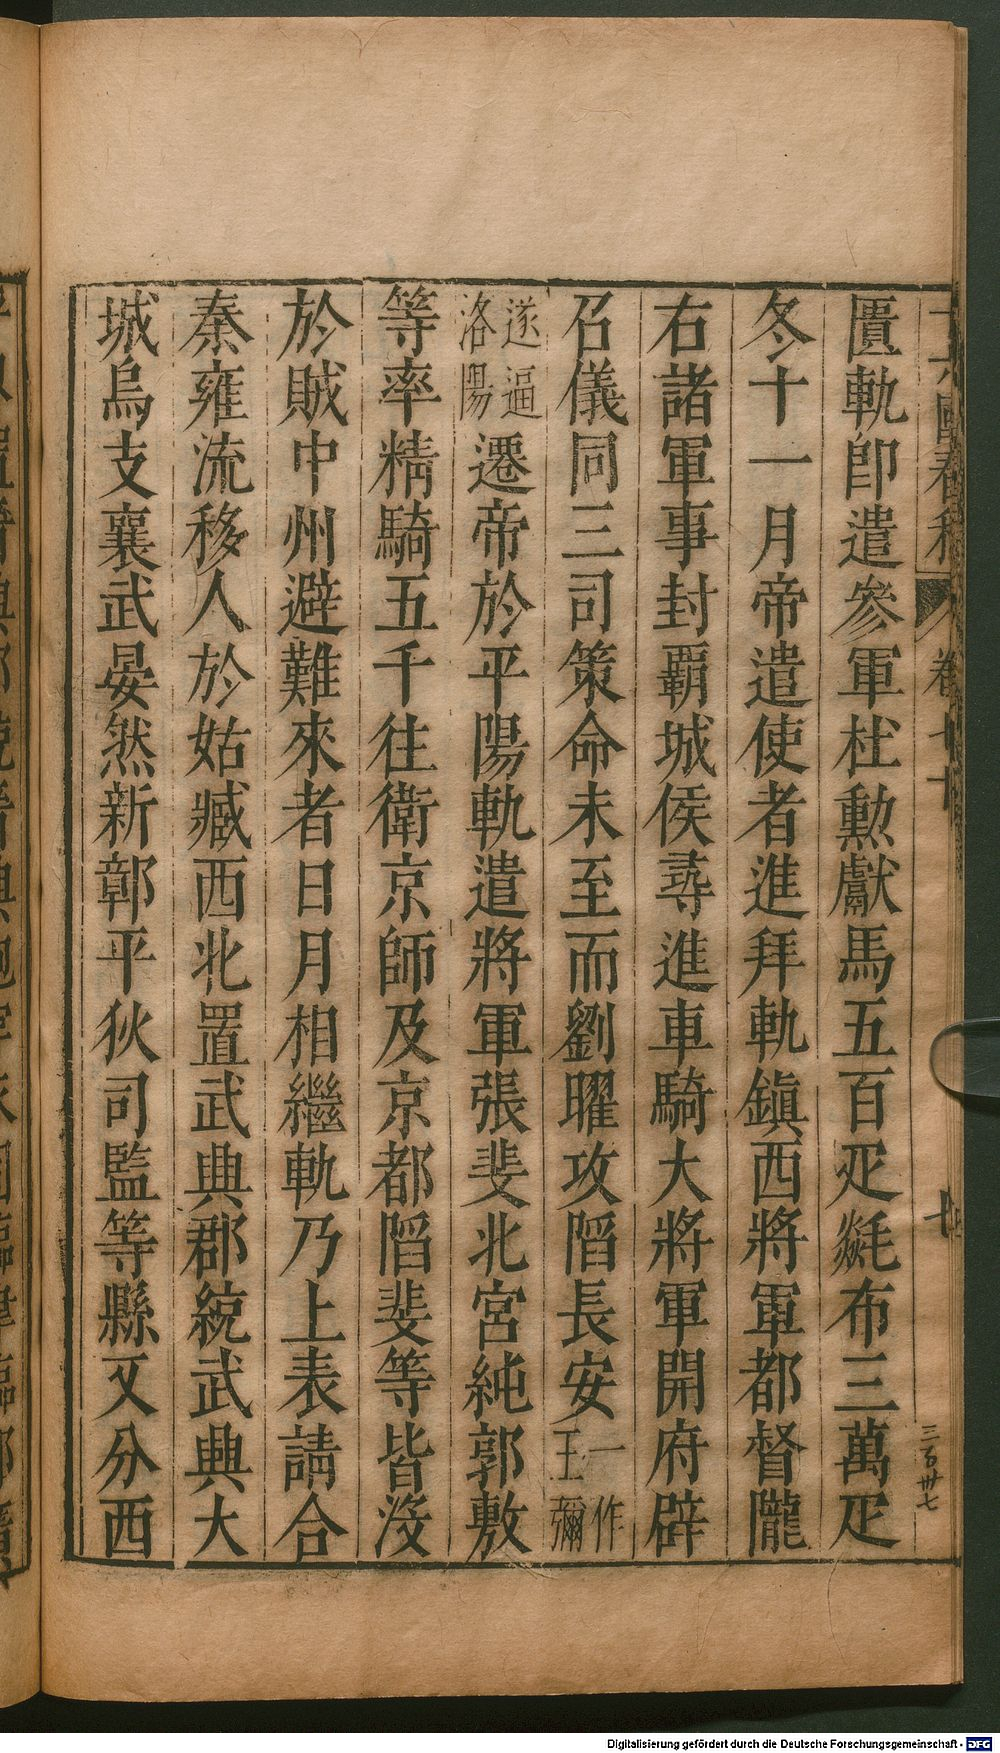 匱軌卽遣參軍杜勳獻馬五百疋毿布三萬疋
冬十一月帝遣使者進拜軌鎮西將軍都督隴
右諸軍事封覇城侯尋進車騎大將軍開府辟
召儀同三司策命未至而劉曜攻陷長安一作王彌
遂逼洛陽遷帝於平陽軌遣將軍張斐北宮純郭敷
等率精騎五千往衛京師及京都陷斐等皆沒
於賊中州避難來者日月相繼軌乃上表請合
秦雍流移人於姑臧西北置武興郡統武興大
城烏支襄武晏然新鄣平狄司監等縣又分西
三百卅七
Digitalisierung gefördert durch die Deutsche Forschungsgemeinschaft - DFG